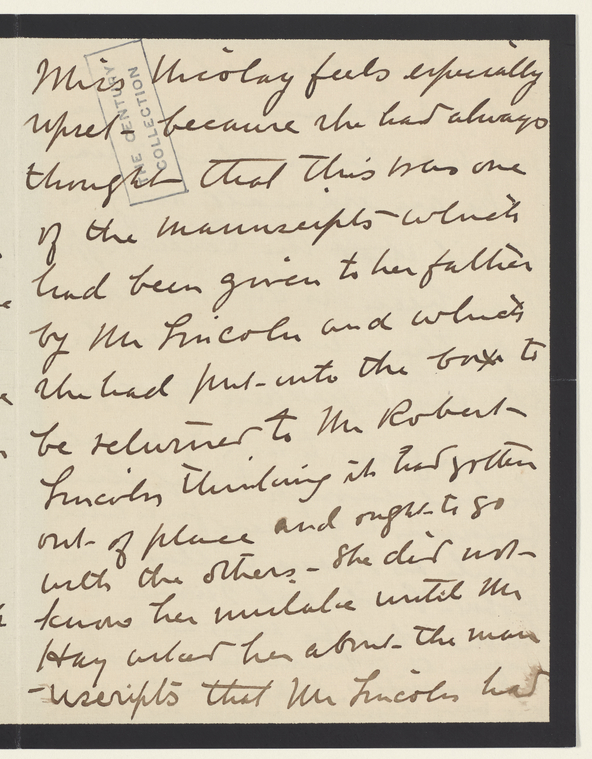 THE CENTURY
COLLECTION
Miss Nicolay feels especially
upset - because she had always
thought that this was one
of the manuscripts which
had been given to her father
by Mr Lincoln and which
she had put into the box to
be returned to Mr Robert
Lincoln thinking it had gotten
out of place and ought to go
with the others. - She did not
know her mistake until Mr
Hay asked her about the man
-uscripts that Mr Lincoln had